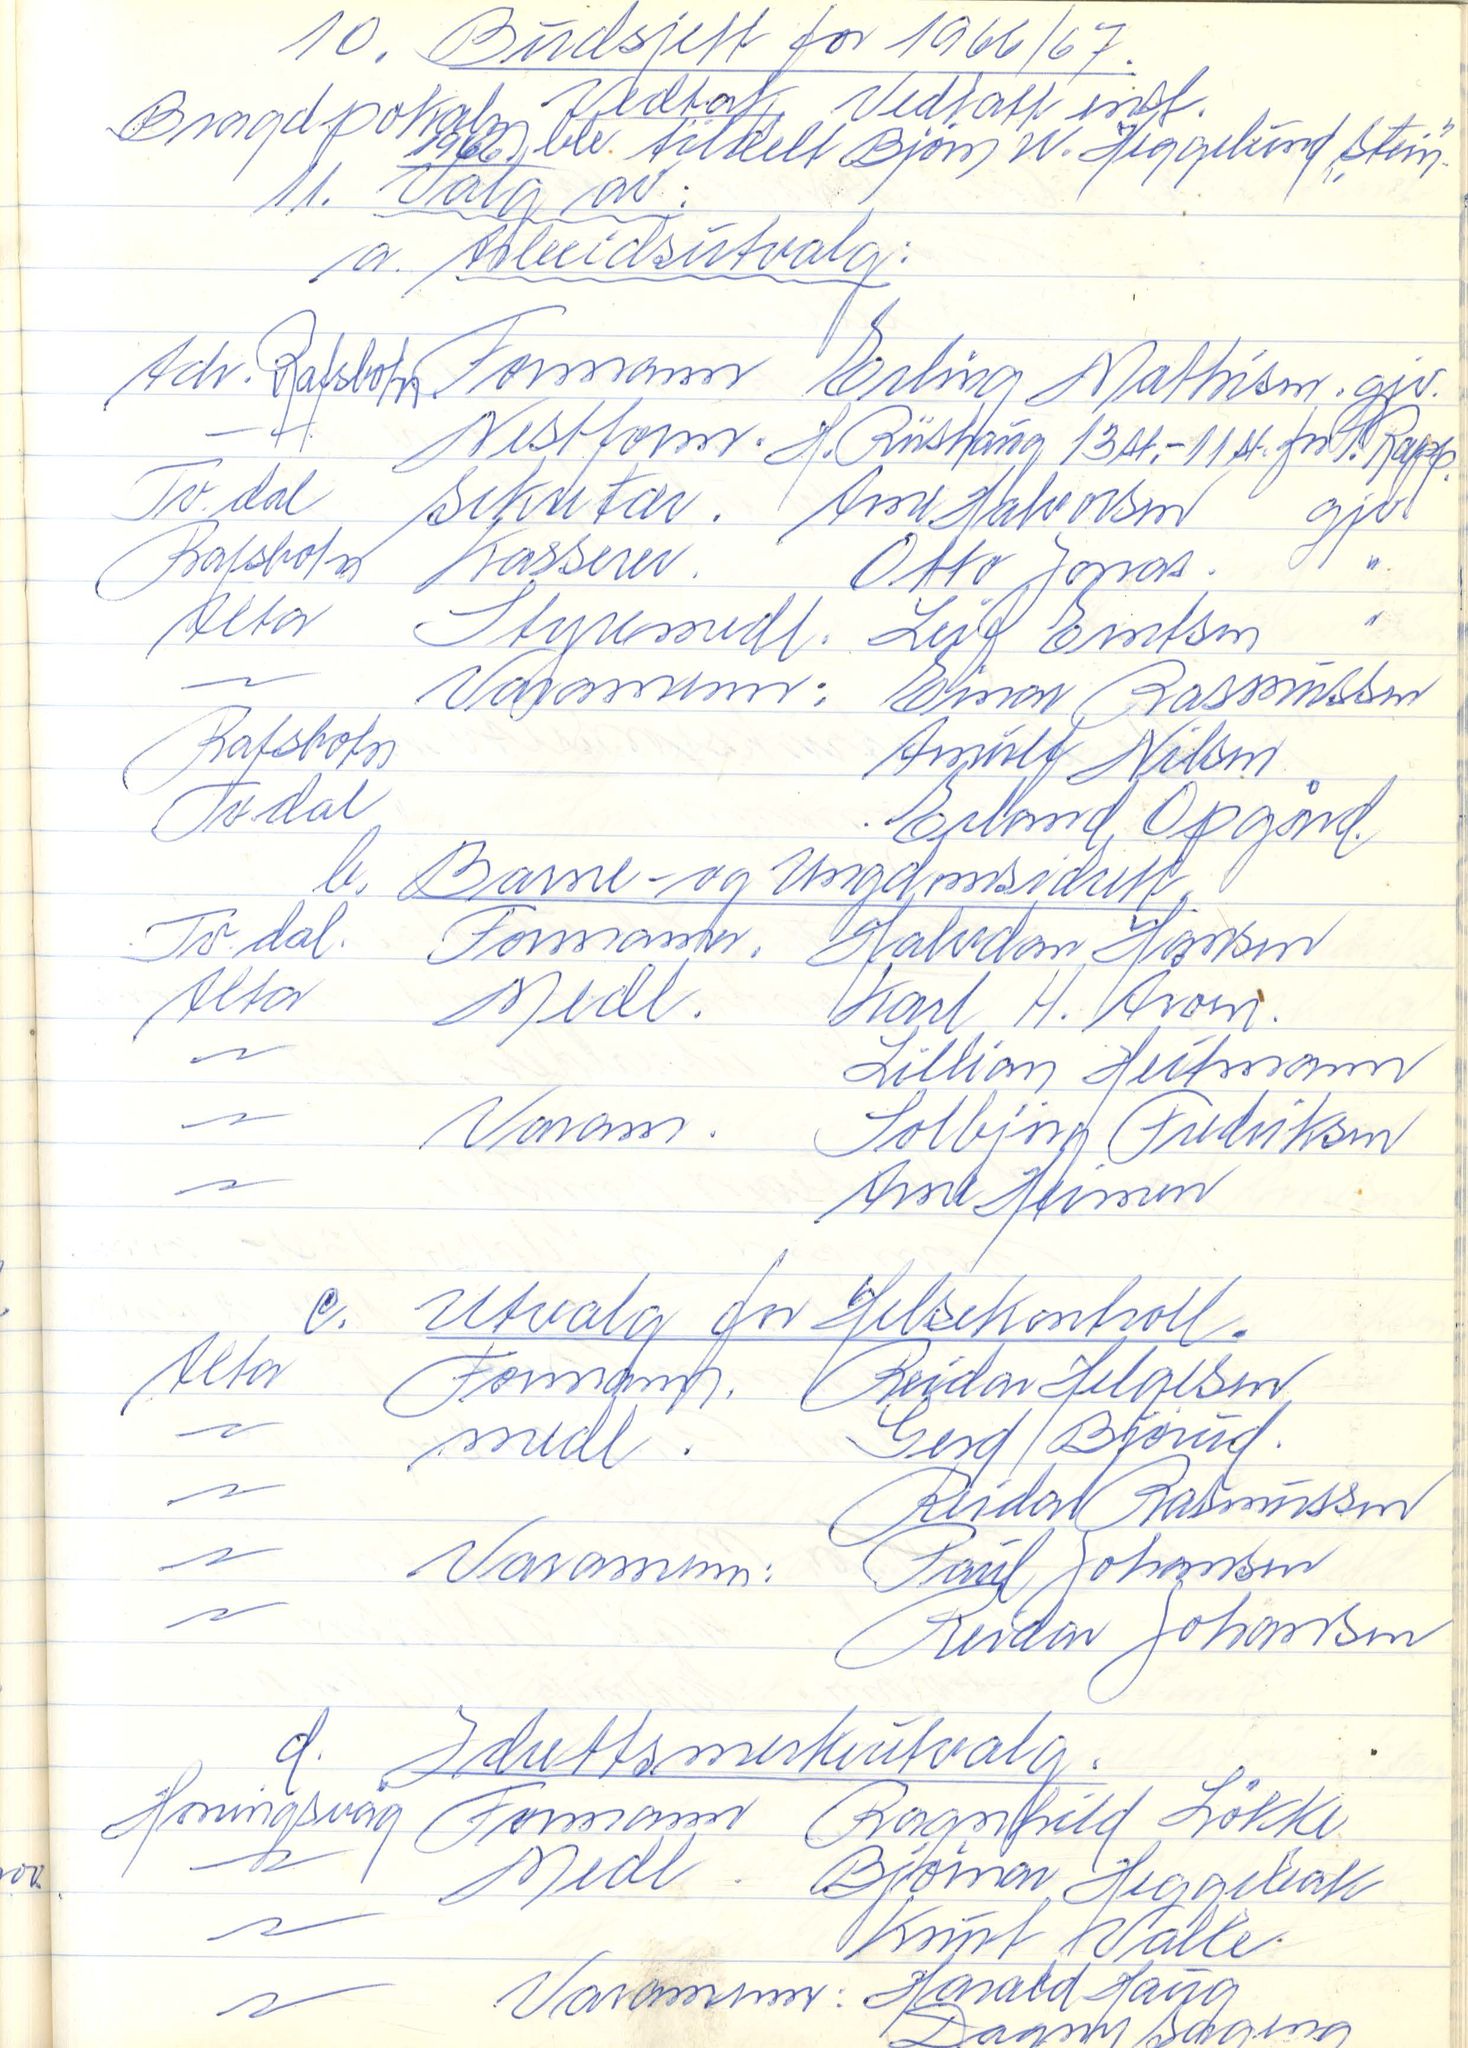 10. Budsjett for 1966/67.
Vedtak Vedtatt inst.
Bragdpokalen 1966 ble tildelt Bjørn W. Heggelund, "Stein"
11. Valg av:
a. Arbeidsutvalg:
Adr. Rafsbotn. Formann Erling Mathisen. gjv.
—"— Nestform. H. Rushaug 13 st. - 11 st. for P. Rapp.
Tv. dal Sekretær. Arne Halvorsen gjv.
Rafsbotn Kasserer. Otto Jonas. "
Alta Styremedl. Leif Erntsen "
— Varamenn: Einar Rasmussen
Rafsbotn Arnulf Nilsen
Tv. dal Erland Opgård.
b. Barne- og Ungdomsidrett.
Tv. dal. Formann. Halvdan Hansen
Alta Medl. Karl H. Aroen.
— Lillian Heitmann
— Varam. Solbjørg Fredriksen
— Arne Heimen
c. Utvalg for Helsekontroll.
Alta Formann. Reidar Helgesen
— medl. Gerd Bjørud.
— Reidar Rasmussen
— Varamenn: Paul Johansen
— Reidar Johansen
d. Idrettsmerkeutvalg.
Honingsvåg Formann Ragnhild Løkke
— Medl. Bjørnar Heggebakk
— Knut Valle.
— Varamenn: Harald Haug
Dagny